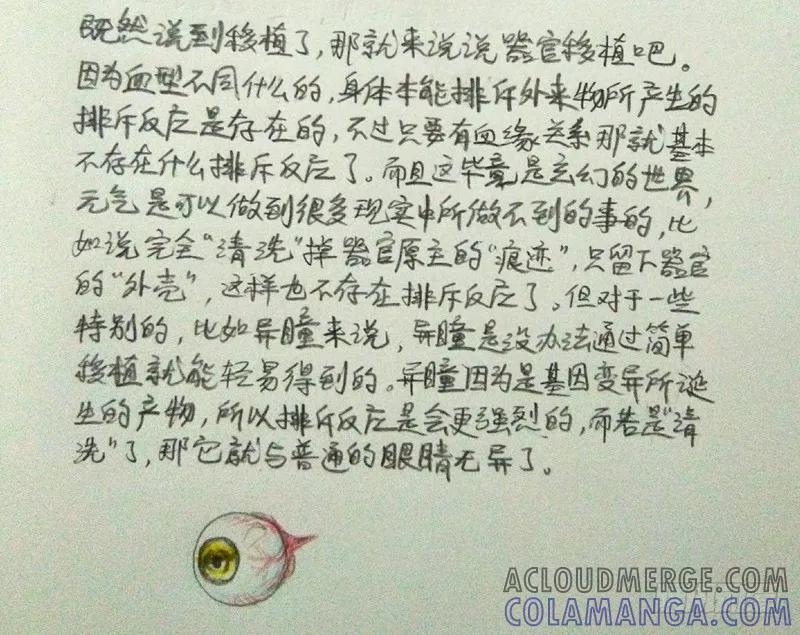 既然说到移植了，那就来说说器官移植吧。
因为血型不同什么的，身体本能排斥外来物所产生的
排斥反应是存在的，不过只要有血缘关系那就基本
不存在什么排斥反应了。而且这毕竟是玄幻的世界，
元气是可以做到很多现实中所做不到的事的，比
如说完全“清洗”掉器官原主的“痕迹”，只留下器官
的“外壳”，这样也不存在排斥反应了。但对于一些
特别的，比如异瞳来说，异瞳是没办法通过简单
移植就能轻易得到的。异瞳因为是基因变异所诞
生的产物，所以排斥反应是会更强烈的，而若是“清
洗”了，那它就与普通的眼睛无异了。
ACLOUDMERGE.COM
COLAMANGA.COM